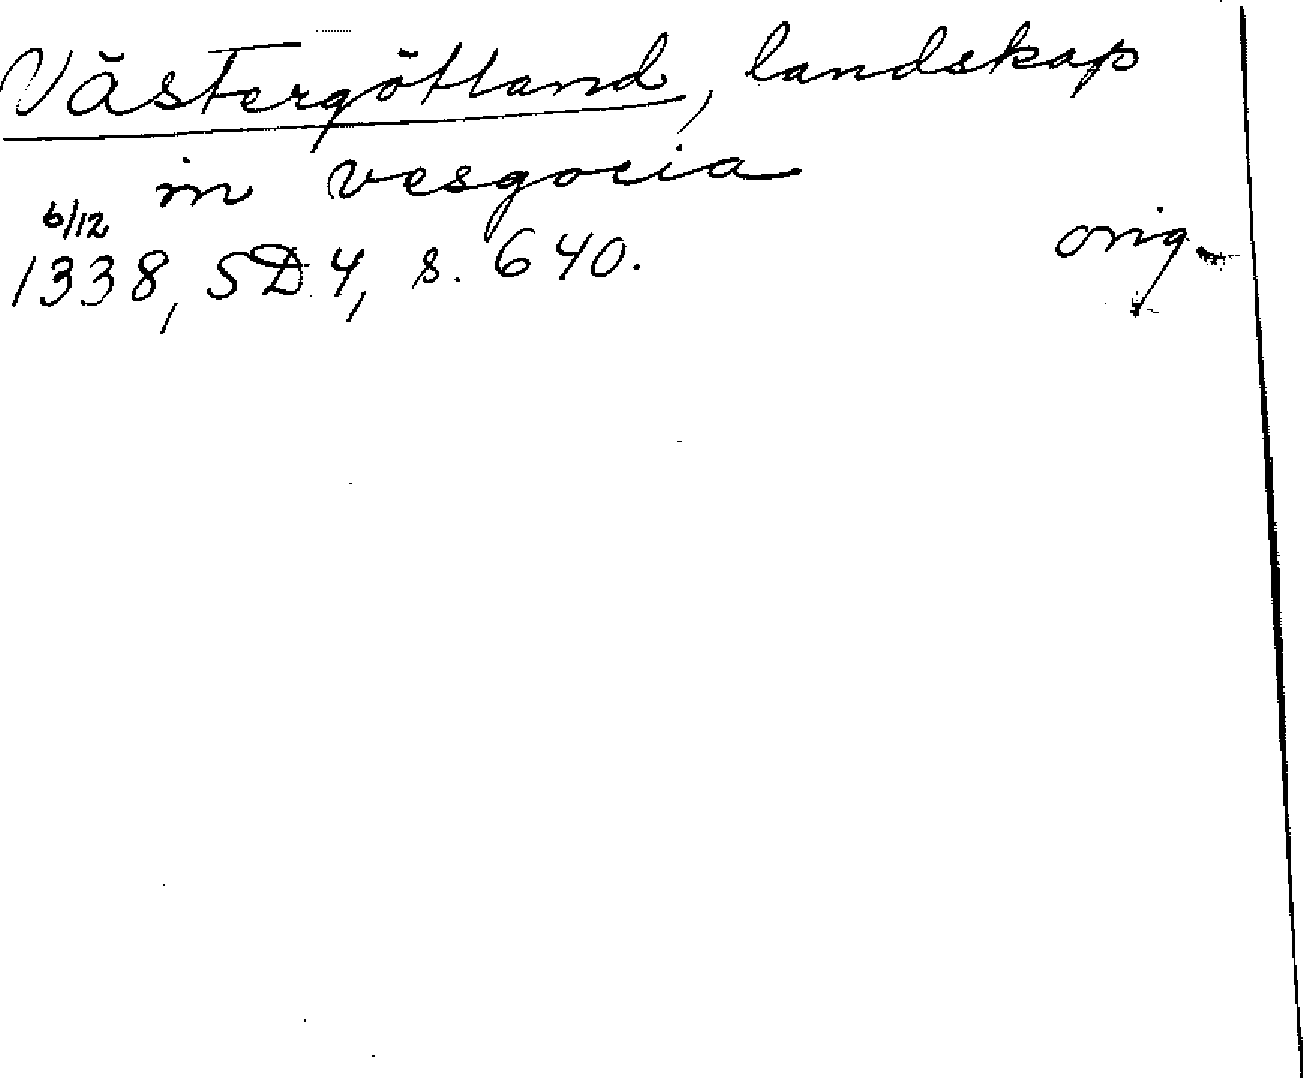 Västergötland, landskap
in vesgocia
6/12
1338, SD 4, s. 640. orig.